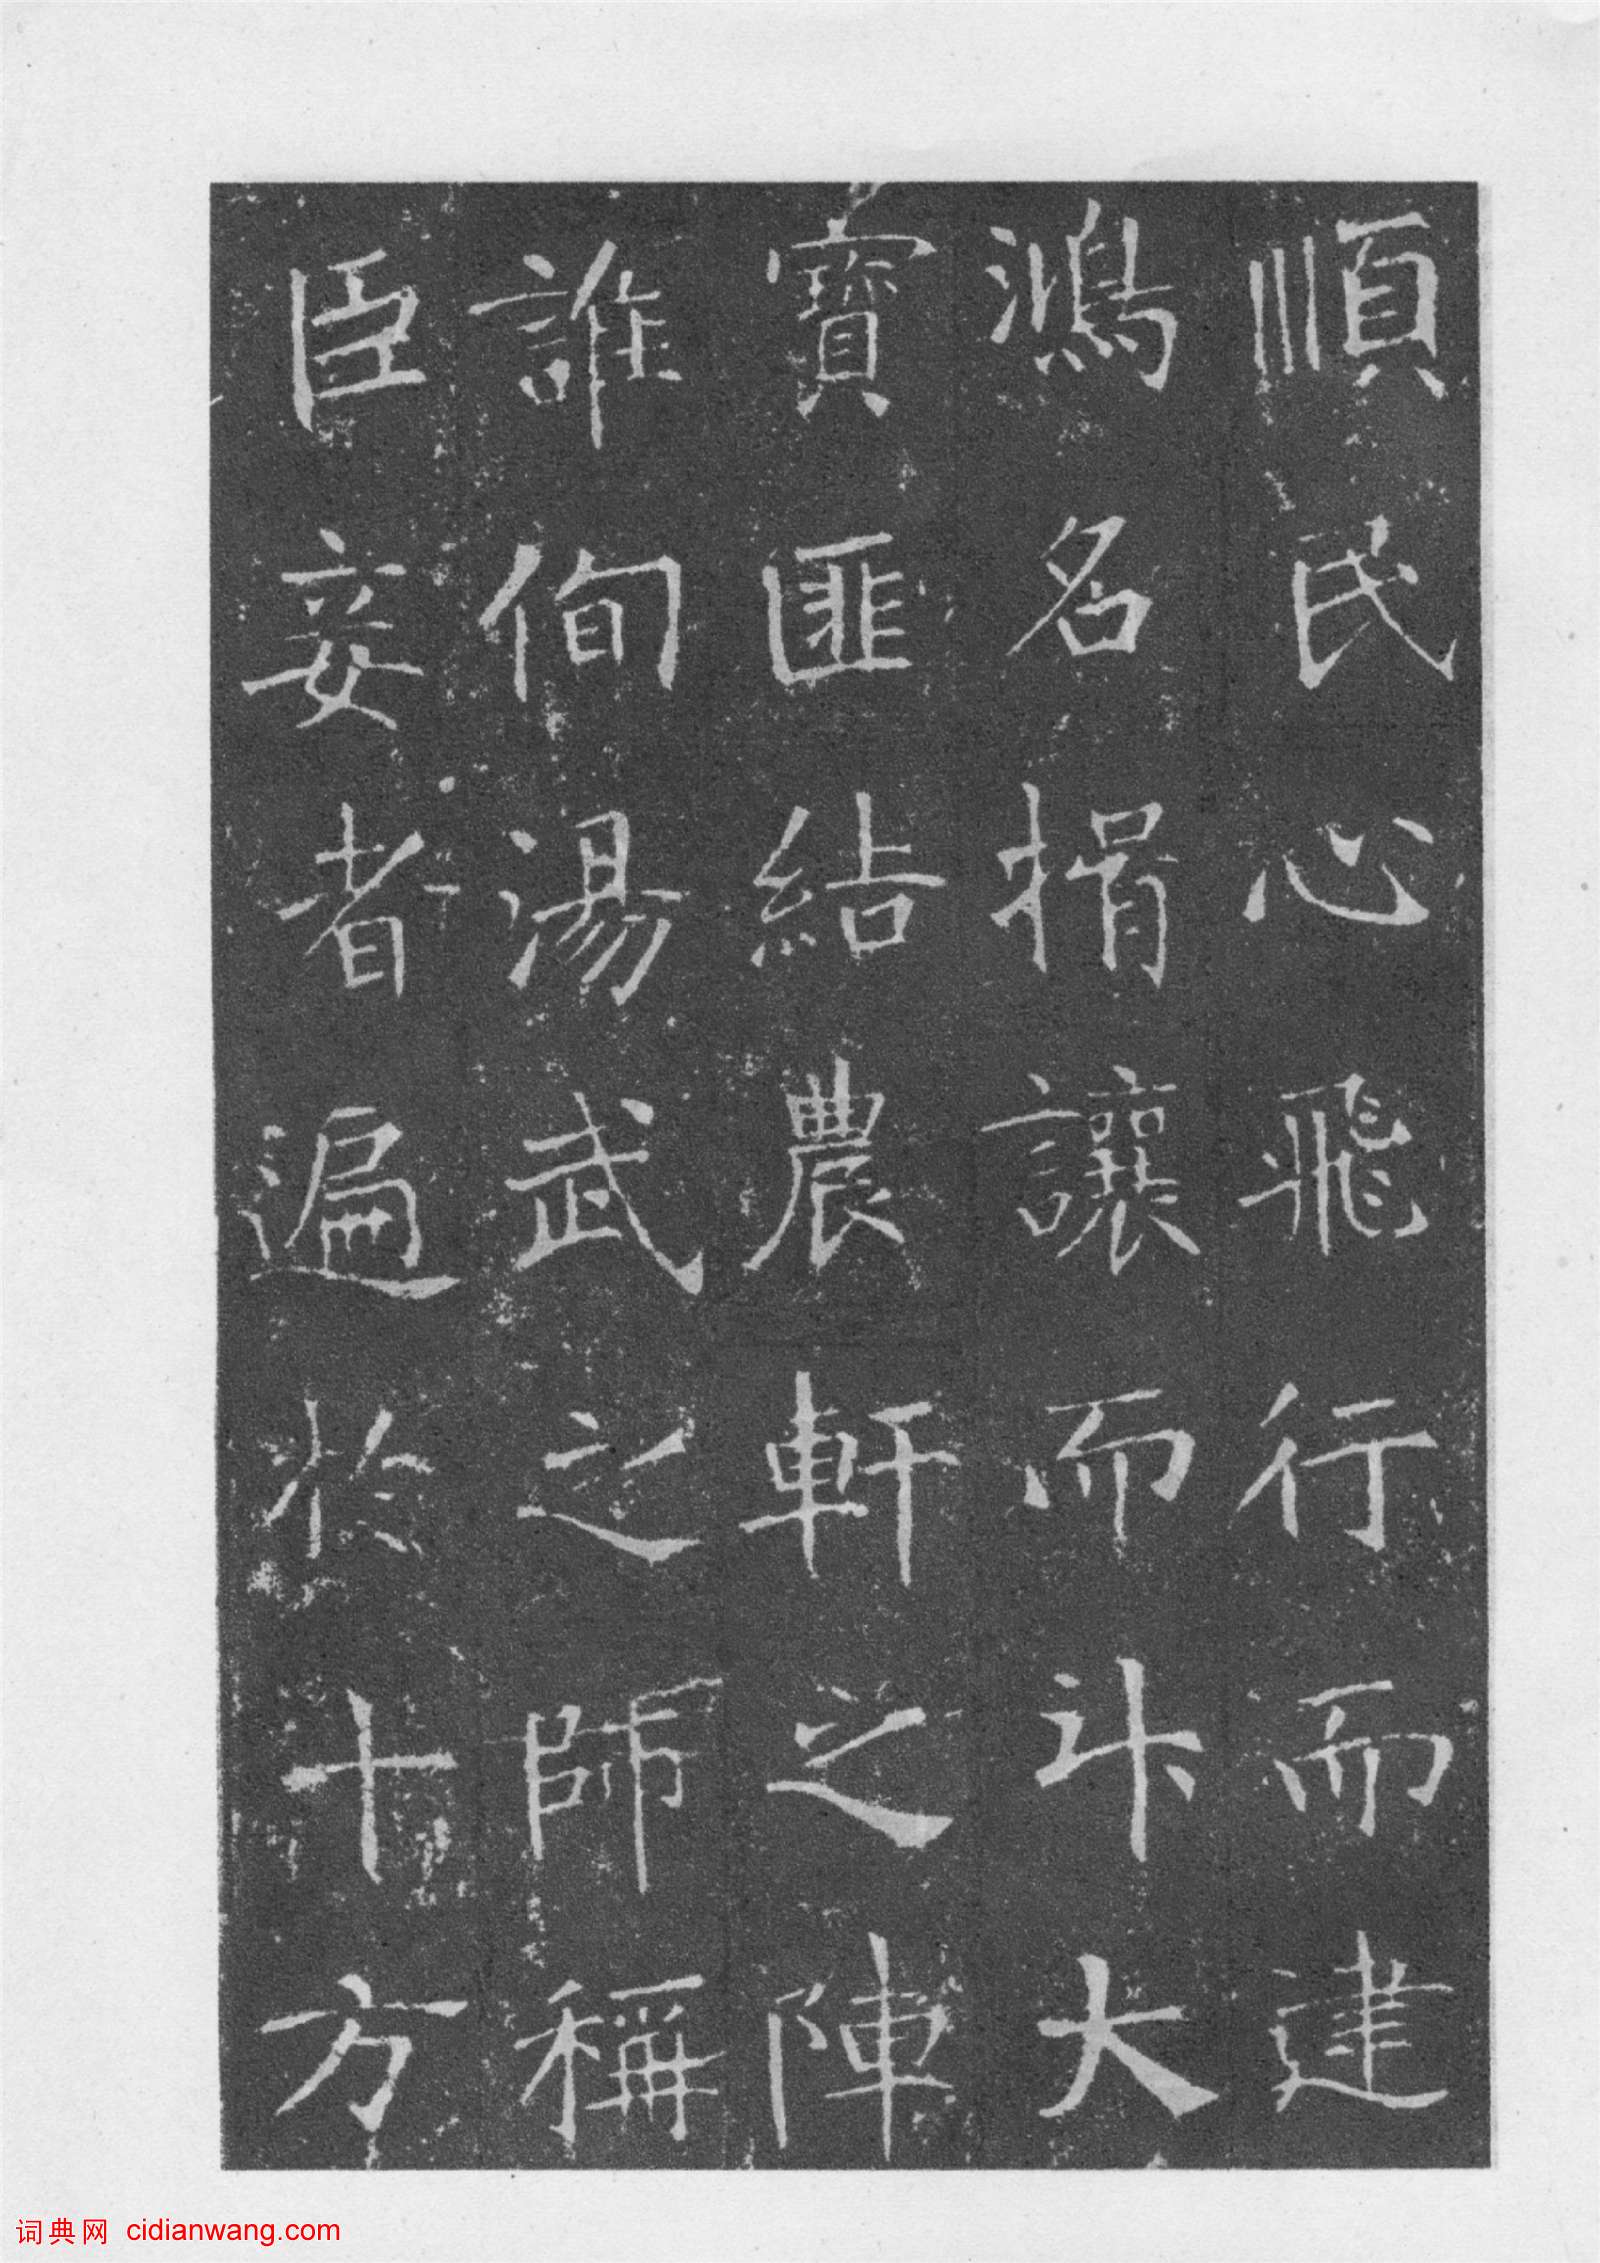 順民心飛行而建
鴻名揖讓而升大
寶匪結農軒之陣
誰侚湯武之師稱
臣妾者遍於十方
词典网 cidianwang.com